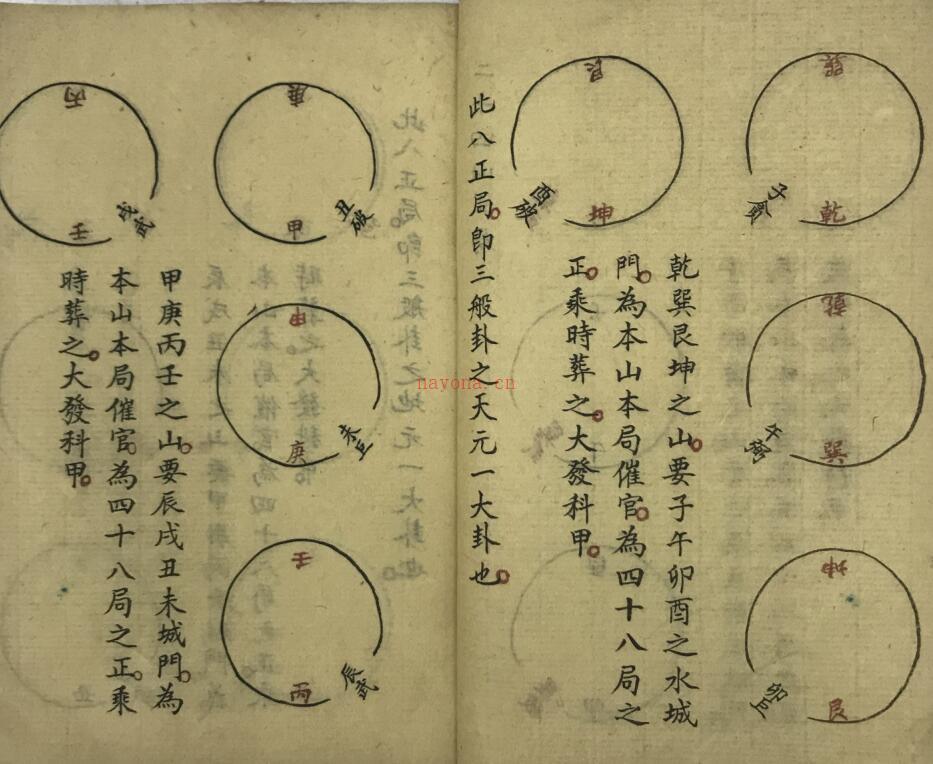 巽
乾
子
乾
巽
午
坤
艮
卯巨
艮
坤
酉破
乾巽艮坤之山要子午卯酉之水城
門為本山本局催官為四十八局之
正乘時葬之大發科甲
此八正局即三般卦之天元一大卦也
庚
甲
丑破
甲
庚
未巨
壬
丙
辰武
丙
壬
戌武
甲庚丙壬之山要辰戌丑未城門為
本山本局催官為四十八局之正乘
時葬之大發科甲
nayona.cn